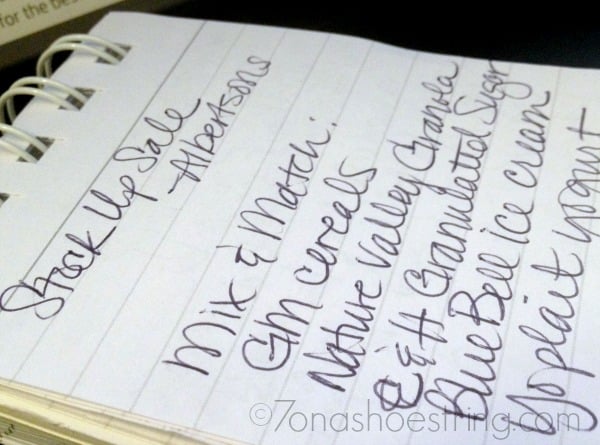 for the bes
Stock Up Sale
-Albertsons
Mix & Match:
GM cereals
Nature Valley Granola
C&H Granulated Sugar
Blue Bell ice cream
Yoplait yogurt
©7onashoestring.com